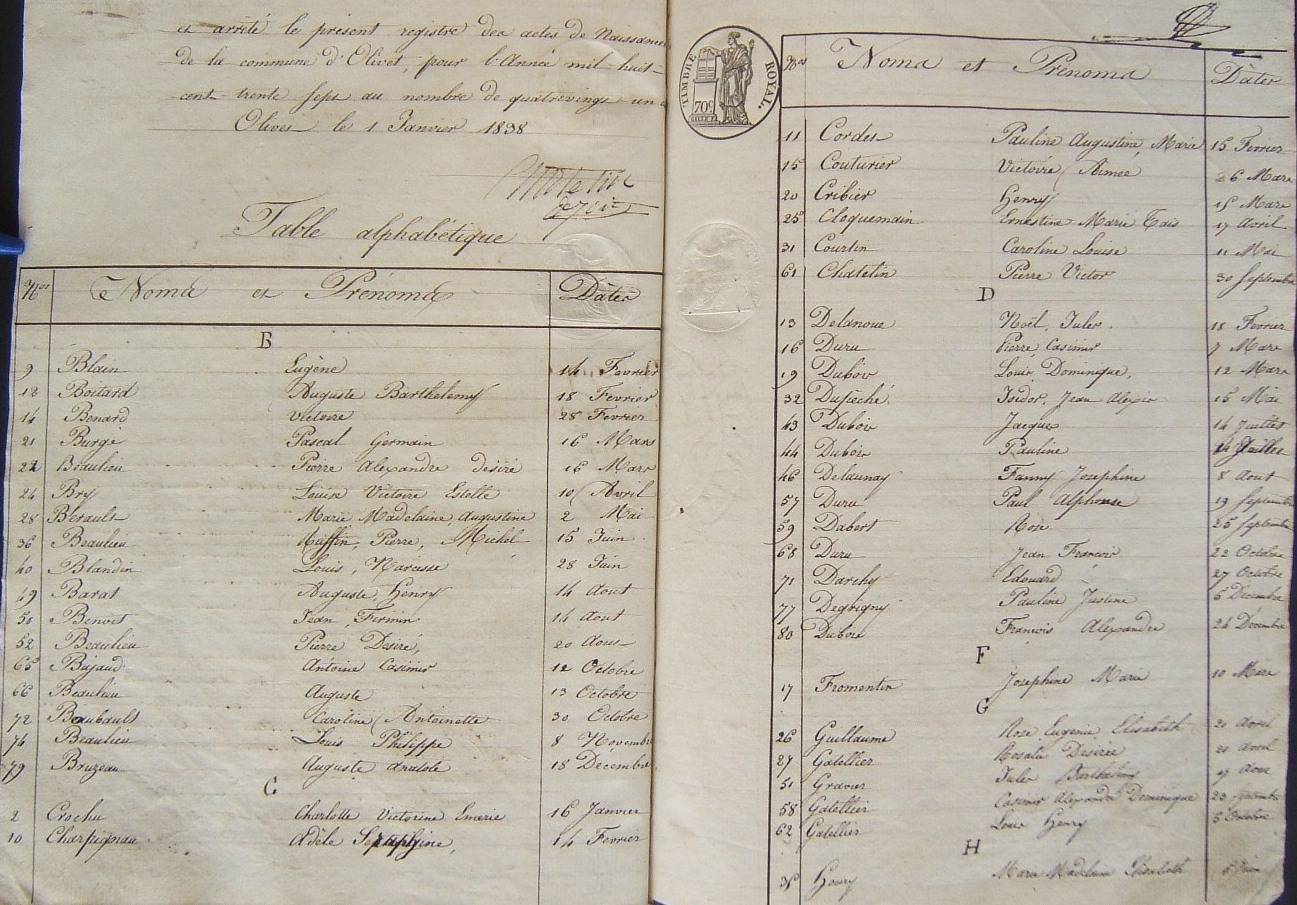 et arrêté le présent registre des actes de Naissance
de la commune d'Olivet, pour l'Année mil-huit-
cent-trente sept au nombre de quatrevingt un
Olivet le 1 Janvier 1838
Table alphabétique
Nos Noms et Prénoms Dates
B
9 Blain Eugène 14 Fevrier
12 Boitard Auguste Barthelemy 18 Fevrier
14 Benard Victoire 28 Fevrier
21 Burgé Pascal Germain 16 Mars
22 Beaulieu Pierre Alexandre desiré 16 Mars
24 Bry Louise Victoire Estelle 10 Avril
28 Berault Marie Madelaine Augustine 2 Mai
36 Beaulieu Ruffin, Pierre, Michel 15 Juin
40 Blandin Louis, Narcisse 28 Juin
49 Barat Auguste Henry 14 Aout
50 Benoist Jean, Firmin 14 Aout
52 Beaulieu Pierre Desiré, 20 Aout
65 Bujaud Antoine Casimir 12 Octobre
66 Beaulieu Auguste 13 Octobre
72 Beaubault Caroline Antoinette 30 Octobre
74 Beaulieu Louis Philippe 8 Novembre
79 Bruzeau Auguste Anatole 18 Décembre
C
2 Crochu Charlotte Victorine Emerie 16 Janvier
10 Charpignau Adèle Séraphine, 14 Fevrier
TIMBRE ROYAL.
70c
Nos Noms et Prénoms Dates
11 Cordes Pauline Augustine, Marie 15 Fevrier
15 Couturier Victoire Aimée 26 Mars
20 Cribier Henry 15 Mars
25 Cloquemain Ernestine Marie 17 Avril
31 Courtin Caroline Louise 11 Mai
61 Chatelin Pierre Victor 30 Septembre
D
13 Delanoue Noël, Jules. 18 Fevrier
16 Duru Pierre Casimir 7 Mars
19 Dubois Louis Dominique, 12 Mars
32 Isidor, Jean Alexis 15 Mai
43 Dubois Jacques 14 Juillet
44 Dubois Pauline Juillet
46 Delaunay Fanny Josephine 8 Aout
57 Duru Paul Alphonse 19 Septembre
59 Dabert Rose 25 Septembre
68 Duru Jean François 22 Octobre
71 Darchy Edouard 27 Octobre
77 Degbigny Pauline Justine 6 Décembre
80 Dubois François Alexandre 24 Décembre
F
17 Fromentin Josephine Marie 10 Mars
G
26 Guillaume Rose Eugenie Elisabeth 20 Avril
27 Gatellier Rosalie Desirée 20 Avril
51 Gravier Jules Barthelemy 17 Aout
58 Gatellier Casimir Alexandre Dominique 23 Septembre
62 Gatellier Louis Henry 5 Octobre
H
Houry Marie Madelaine Elisabeth 5 Juin